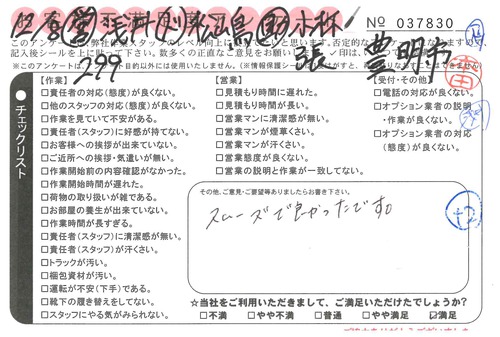 松島 小林 № 037830
このアンケートは弊社従業スタッフのレベル向上に
記入後シールを上に貼って下さい。
※このアンケートは、
299 張 豊明市
チェックリスト
【作業】
□責任者の対応(態度)が良くない。
□他のスタッフの対応(態度)が良くない。
□作業を見ていて不安がある。
□責任者(スタッフ)に好感が持てない。
□お客様への挨拶が出来ていない。
□ご近所への挨拶・気遣いが無い。
□作業開始前の内容確認がなかった。
□作業開始時間が遅れた。
□荷物の取り扱いが雑である。
□お部屋の養生が出来ていない。
□作業時間が長すぎる。
□責任者(スタッフ)に清潔感が無い。
□責任者(スタッフ)が汗くさい。
□トラックが汚い。
□梱包資材が汚い。
□運転が不安(下手)である。
□靴下の履き替えをしてない。
□スタッフにやる気がみられない。
【営業】
□見積もり時間に遅れた。
□見積もり時間が長い。
□営業マンに清潔感が無い。
□営業マンが煙草くさい。
□営業マンが汗くさい。
□営業態度が良くない。
□営業の説明と作業が一致してない。
【受付・その他】
□電話の対応が良くない。
□オプション業者の説明
・作業が良くない。
□オプション業者の対応
(態度)が良くない。
その他、ご意見・ご要望等ありましたらお書き下さい。
スムーズで良かったです。
☆当社をご利用いただきまして、ご満足いただけたでしょうか?
□不満 □やや不満 □普通 □やや満足 ☑満足